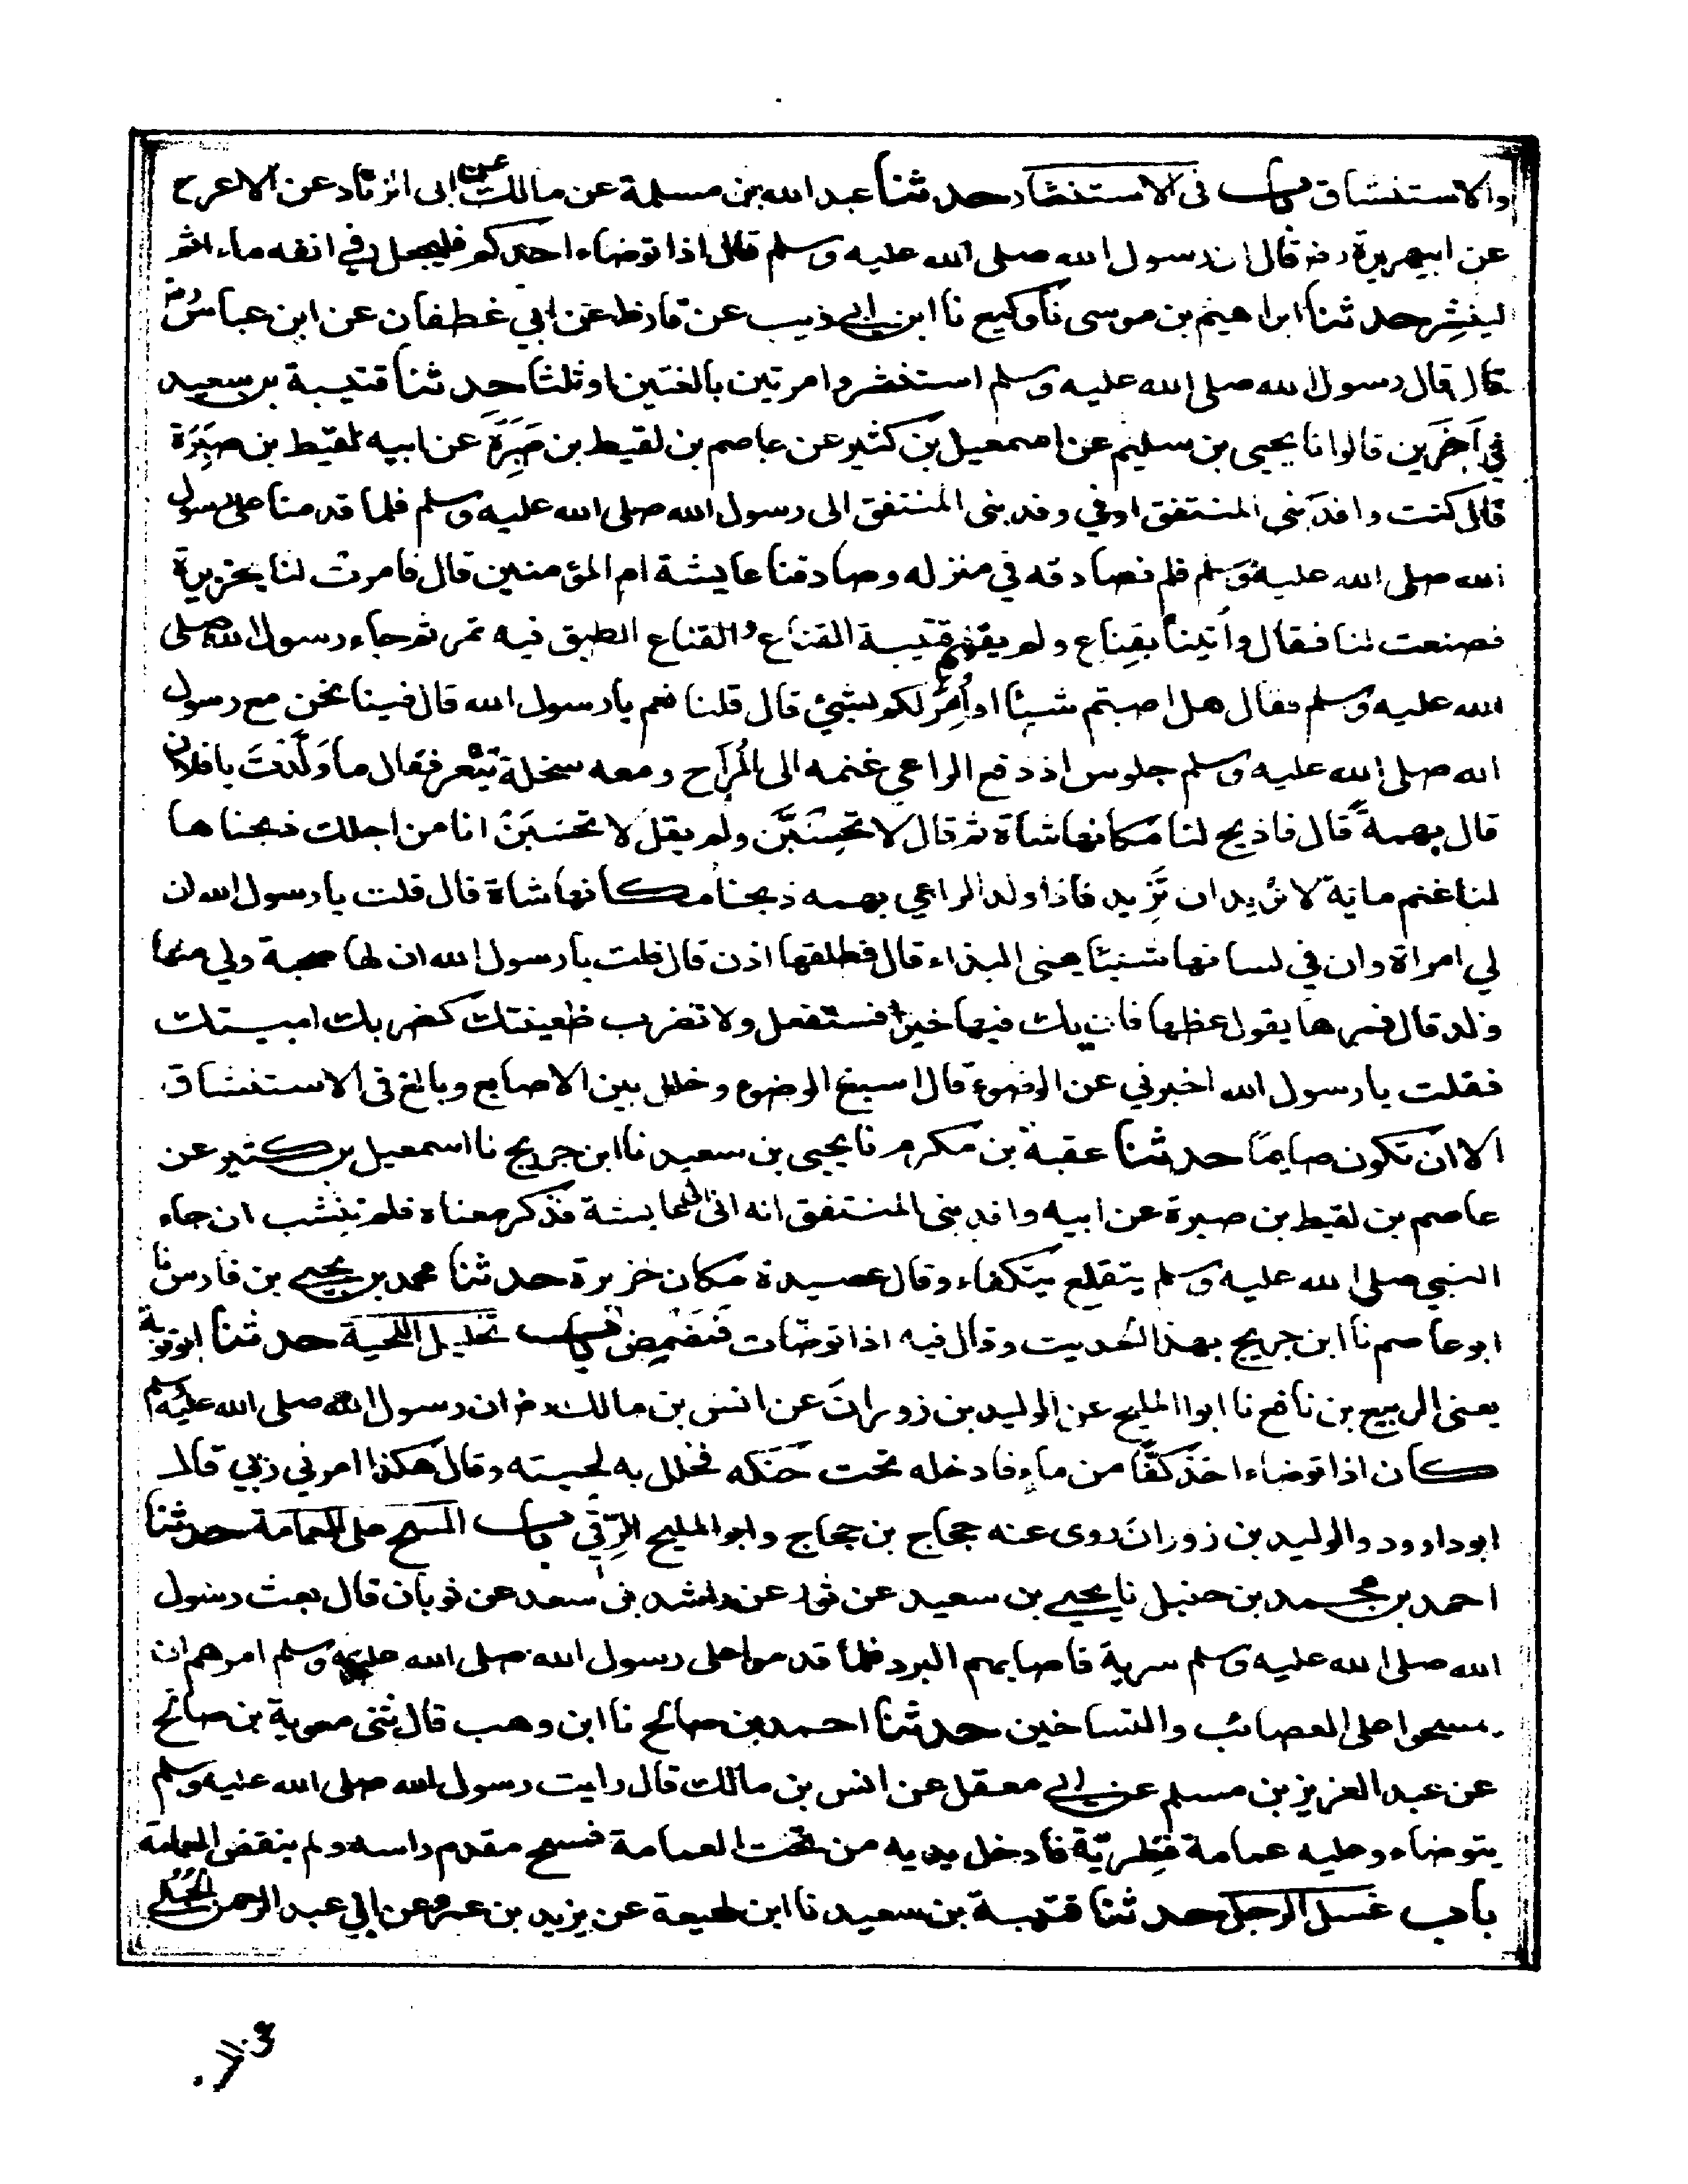 والاستنشاق باب فى الاستنثار حدثنا عبد الله بن مسلمة عن مالك عن ابى الزناد عن الاعرج
عن ابيهريرة رضه قال ان رسول الله صلى الله عليه وسلم قال اذا توضاء احدكم فليجعل في انفه ماء ثم
لينثر حدثنا ابراهيم بن موسى نا وكيع نا ابن ابي ذيب عن قارظ عن ابي غطفان عن ابن عباس رض
قال قال رسول الله صلى الله عليه وسلم استنثروا مرتين بالغتين او ثلثا حدثنا قتيبة بن سعيد
في آخَرين قالوا نا يحيى بن سليم عن اسمعيل بن كثير عن عاصم بن لقيط بن صَبِرَة عن ابيه لقيط بن صَبِرَة
قال كنت وافد بني المنتفق او في وفد بنى المنتفق الى رسول الله صلى الله عليه وسلم فلما قدمنا على رسول
الله صلى الله عليه وسلم فلم نصادفه في منزله وصادفنا عايشة ام المؤمنين قال فامرت لنا بخزيرة
فصنعت لنا فقال وأتينا بقِناع ولم يفهم قتيبة القناع والقناع الطبق فيه تمر ثم جاء رسول الله صلى
الله عليه وسلم فقال هل اصبتم شيئا او اُمِرَ لكم بشيئ قال قلنا نعم يا رسول الله قال فبينا نحن مع رسول
الله صلى الله عليه وسلم جلوس اذ دفع الراعي غنمه الى المُرَاح ومعه سخلة تَيْعَر فقال ما وَلَّدتَ يا فلان
قال بهمةً قال فاذبح لنا مكانها شاة ثم قال لا تحْسِبَنَّ ولم يقل لا تحسَبَنَّ انا من اجلك ذبحناها
لنا غنم ماية لا نريد ان تَزِيد فاذا ولد الراعي بهمه ذبحنا مكانها شاة قال قلت يا رسول الله ان
لي امراة وان في لسانها شيئا يعنى البذاء قال فطلقها اذن قال قلت يا رسول الله ان لها صحبة ولي منها
ولد قال فمرها يقول عظها فان يك فيها خير فستفعل ولا تضرب ظعينتك كضربك اميتك
فقلت يا رسول الله اخبرني عن الوضوء قال اسبغ الوضوء وخلل بين الاصابع وبالغ فى الاستنشاق
الا ان تكون صايما حدثنا عقبة بن مكرم نا يحيى بن سعيد نا ابن جريج نا اسمعيل بن كثير عن
عاصم بن لقيط بن صبرة عن ابيه وافد بنى المنتفق انه اتى الى عايشة فذكر معناه فلم ينشب ان جاء
النبي صلى الله عليه وسلم يتقلع يتكفاء وقال عصيدة مكان خزيرة حدثنا محمد بن يحيى بن فارس نا
ابو عاصم نا ابن جريج بهذا الحديث وقال فيه اذا توضات فَمَضْمِض باب تخليل اللحية حدثنا ابو توبة
يعنى الربيع بن نافع نا ابو المليح عن الوليد بن زورانَ عن انس بن مالك رض ان رسول الله صلى الله عليه وسلم
كان اذا توضاء اخذ كفًّا من ماء فادخله تحت حَنَكه فخلل به لحيته وقال هكذا امرني ربي قال
ابو داوود والوليد بن زورانَ روى عنه حجاج بن حجاج وابو المليح الرِّقي باب المسح على العمامة حدثنا
احمد بن محمد بن حنبل نا يحيى بن سعيد عن ثور عن راشد بن سعد عن ثوبان قال بعث رسول
الله صلى الله عليه وسلم سرية فاصابهم البرد فلما قدموا على رسول الله صلى الله عليه وسلم امرهم ان
يمسحوا على العصائب والتساخين حدثنا احمد بن صالح نا ابن وهب قال ثنى معوية بن صالح
عن عبد العزيز بن مسلم عن ابي معقل عن انس بن مالك قال رايت رسول الله صلى الله عليه وسلم
يتوضاء وعليه عمامة قِطريّة فادخل يديه من تحت العمامة فمسح مقدم راسه ولم ينقض العمامة
باب غسل الرجل حدثنا قتيبة بن سعيد نا ابن لهيعة عن يزيد بن عمرو عن ابي عبد الرحمن الحُبُلي